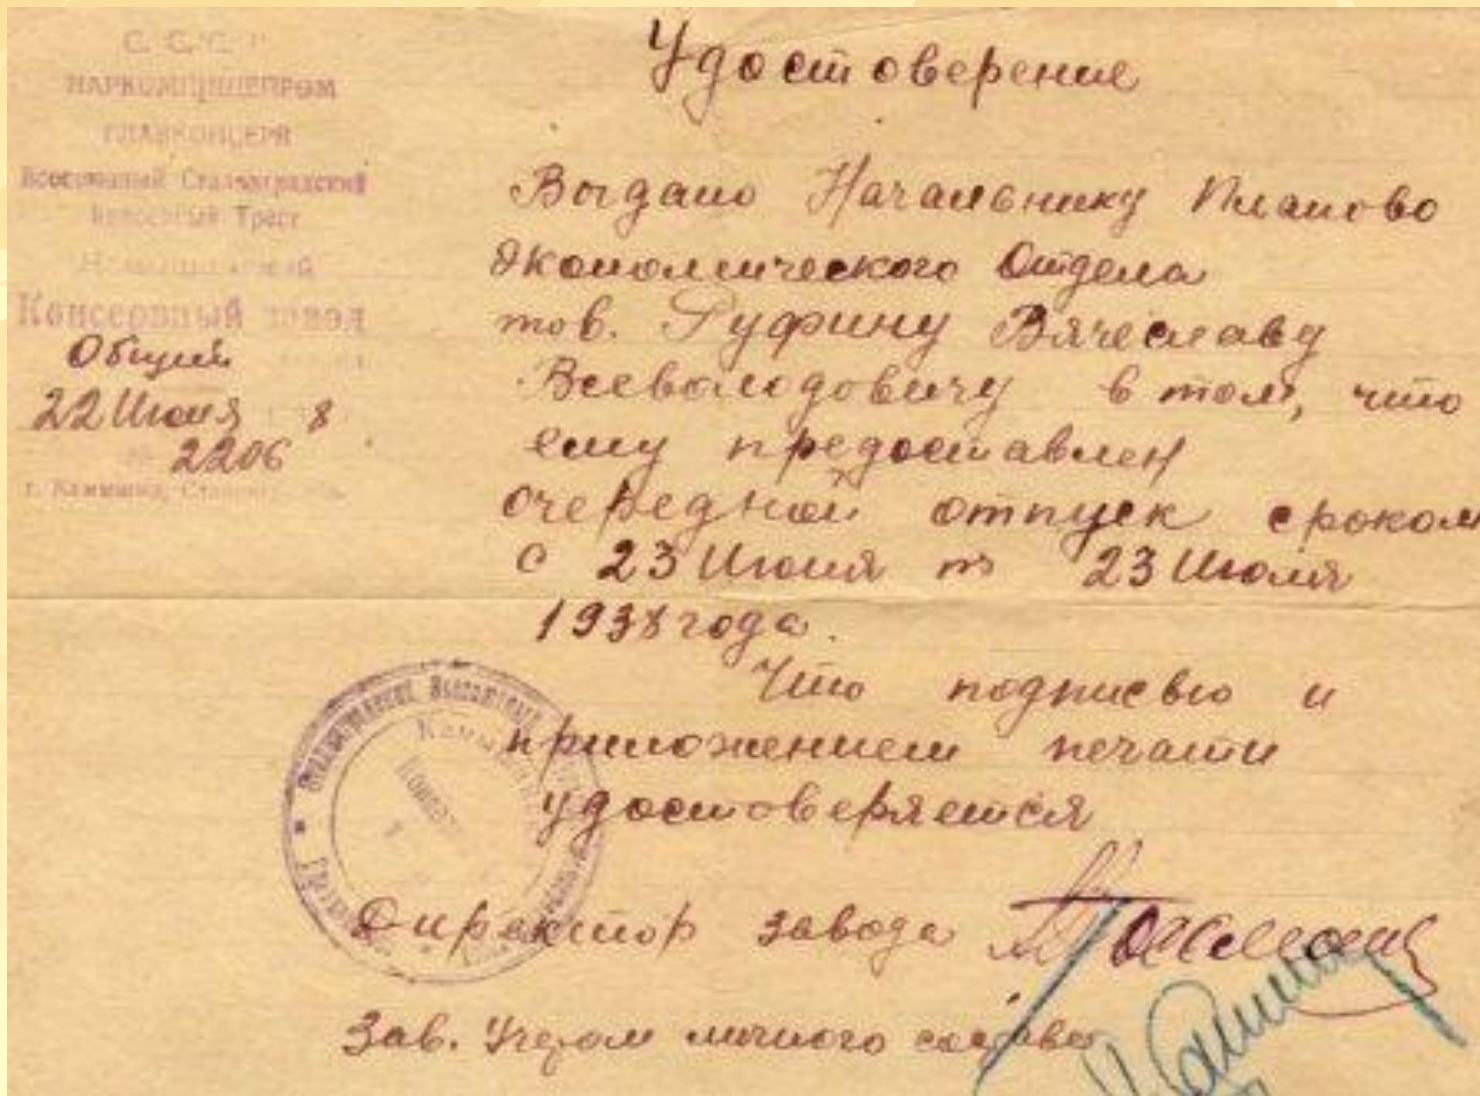 С. С. С. Р.
НАРКОМПИЩЕПРОМ
ГЛАВКОНСЕРВ
Всесоюзный Сталинградский
Консервный Трест
Камышинский
Консервный завод
Общий
22 Июня 8
№ 2206
г. Камышин, Сталингр. обл.
Удостоверение
Выдано Начальнику Планово
Экономического Отдела
тов. Руфину Вячеславу
Всеволодовичу в том, что
ему предоставлен
очередной отпуск сроком
с 23 Июня по 23 Июля
1938 года.
Что подписью и
приложением печати
удостоверяется
Директор завода
Зав. Учетом личного состава